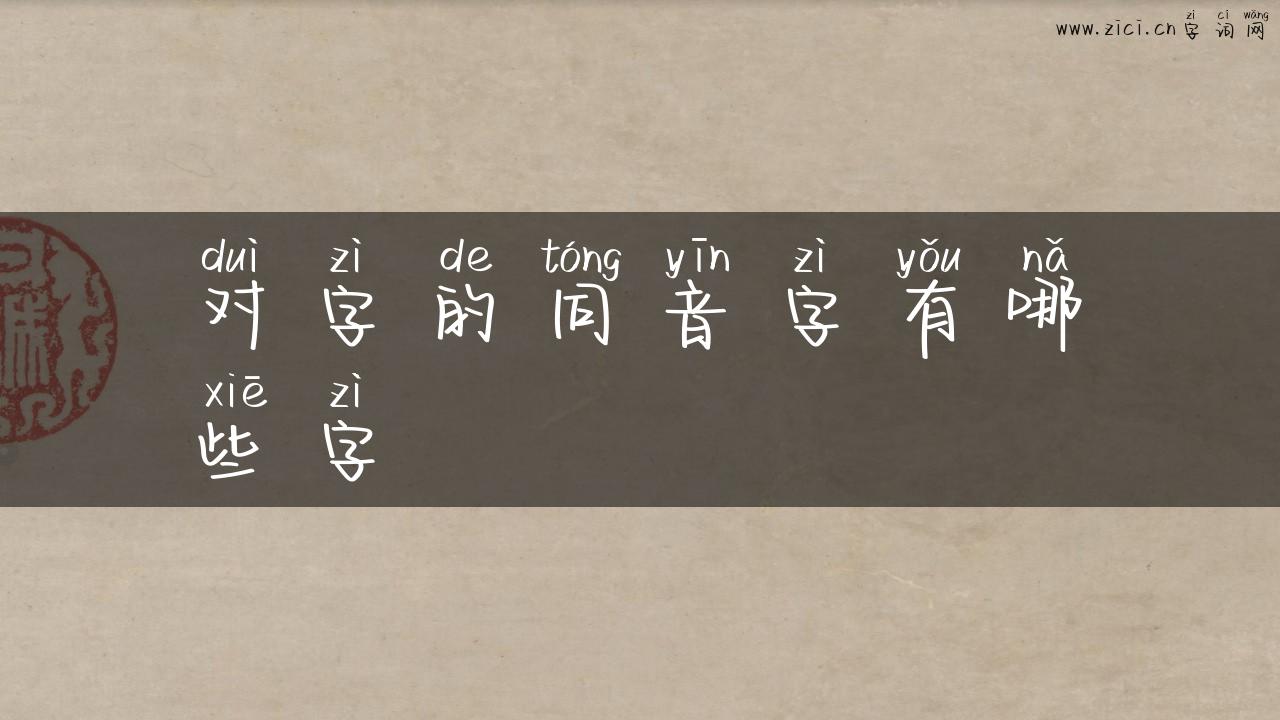 zì cí wǎng
www.zici.cn字词网
duì zì de tóng yīn zì yǒu nǎ
对字的同音字有哪
xiē zì
些字